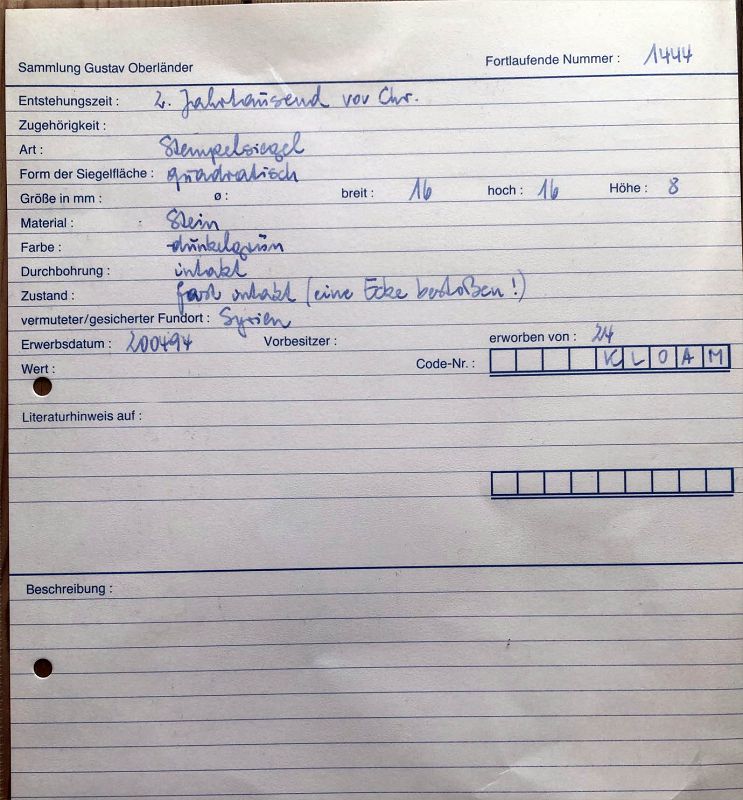 Sammlung Gustav Oberländer Fortlaufende Nummer : 1444
Entstehungszeit : 2. Jahrtausend vor Chr.
Zugehörigkeit :
Art : Stempelsiegel
Form der Siegelfläche : quadratisch
Größe in mm : ø : breit : 16 hoch : 16 Höhe : 8
Material : Stein
Farbe : dunkelgrün
Durchbohrung : intakt
Zustand : fast intakt (eine Ecke bestoßen!)
vermuteter/gesicherter Fundort : Syrien
Erwerbsdatum : 200494 Vorbesitzer : erworben von : 24
Wert : Code-Nr. : KLOAM
Literaturhinweis auf :
Beschreibung :